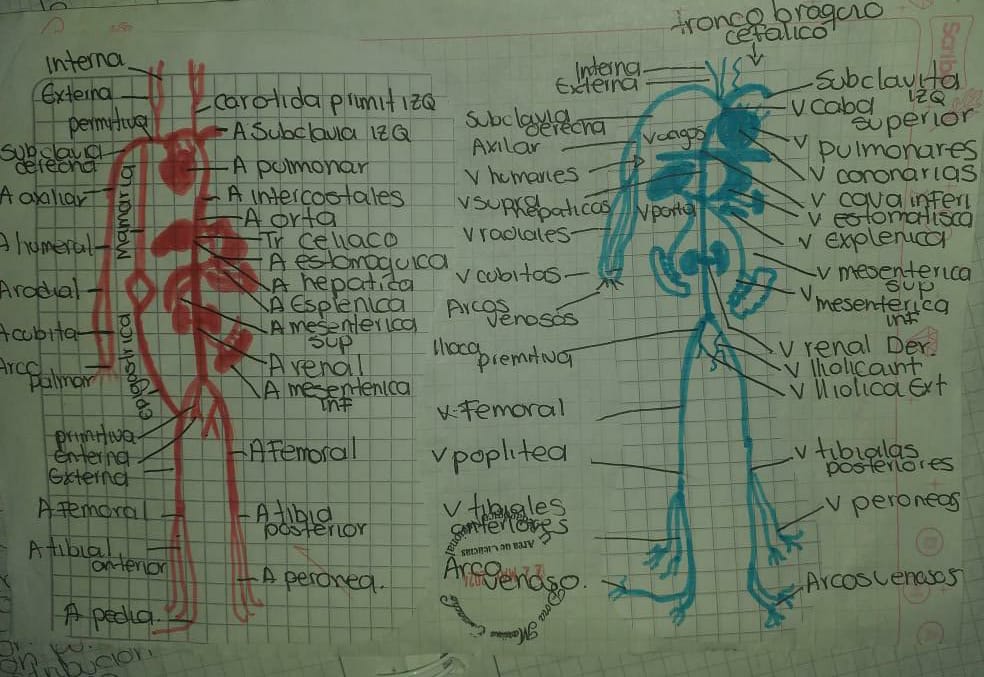 Interna
Externa
permitiva
subclavia
derecha
A axiliar
Mamaria
A humeral
A radial
A cubita
Arco
palmar
Epigástrica
primitiva
enterna
Externa
A Femoral
A tibial
anterior
A pedia
carotida primit IZQ
A Subclavia IZQ
A pulmonar
A intercostales
A orta
Tr celiaco
A estomaquica
A hepatida
A Esplenica
A mesenterica
sup
A renal
A mesentenica
inf
A Femoral
A tibia
posterior
A peronea.
tronco bragcio
cefalico
Interna
Externa
Subclavia
derecha
Axilar
V humanes
V supra
Hepaticas
V radiales
V cubitas
Arcos
venosos
Iliaca
premitiva
V. Femoral
V poplitea
V tibiales
anteriores
Arco
venaso.
V porta
Subclavita
IZQ
V caba
superior
V pulmonares
V cononarias
V cava inferi
V estomatisca
V explenica
V mesenterica
sup
V
mesenterica
inf
V renal Der.
V Iliolicaint
V Iliolica Ext
V tibialas
posteriores
V peroneas
Arcosvenasos
Scribe